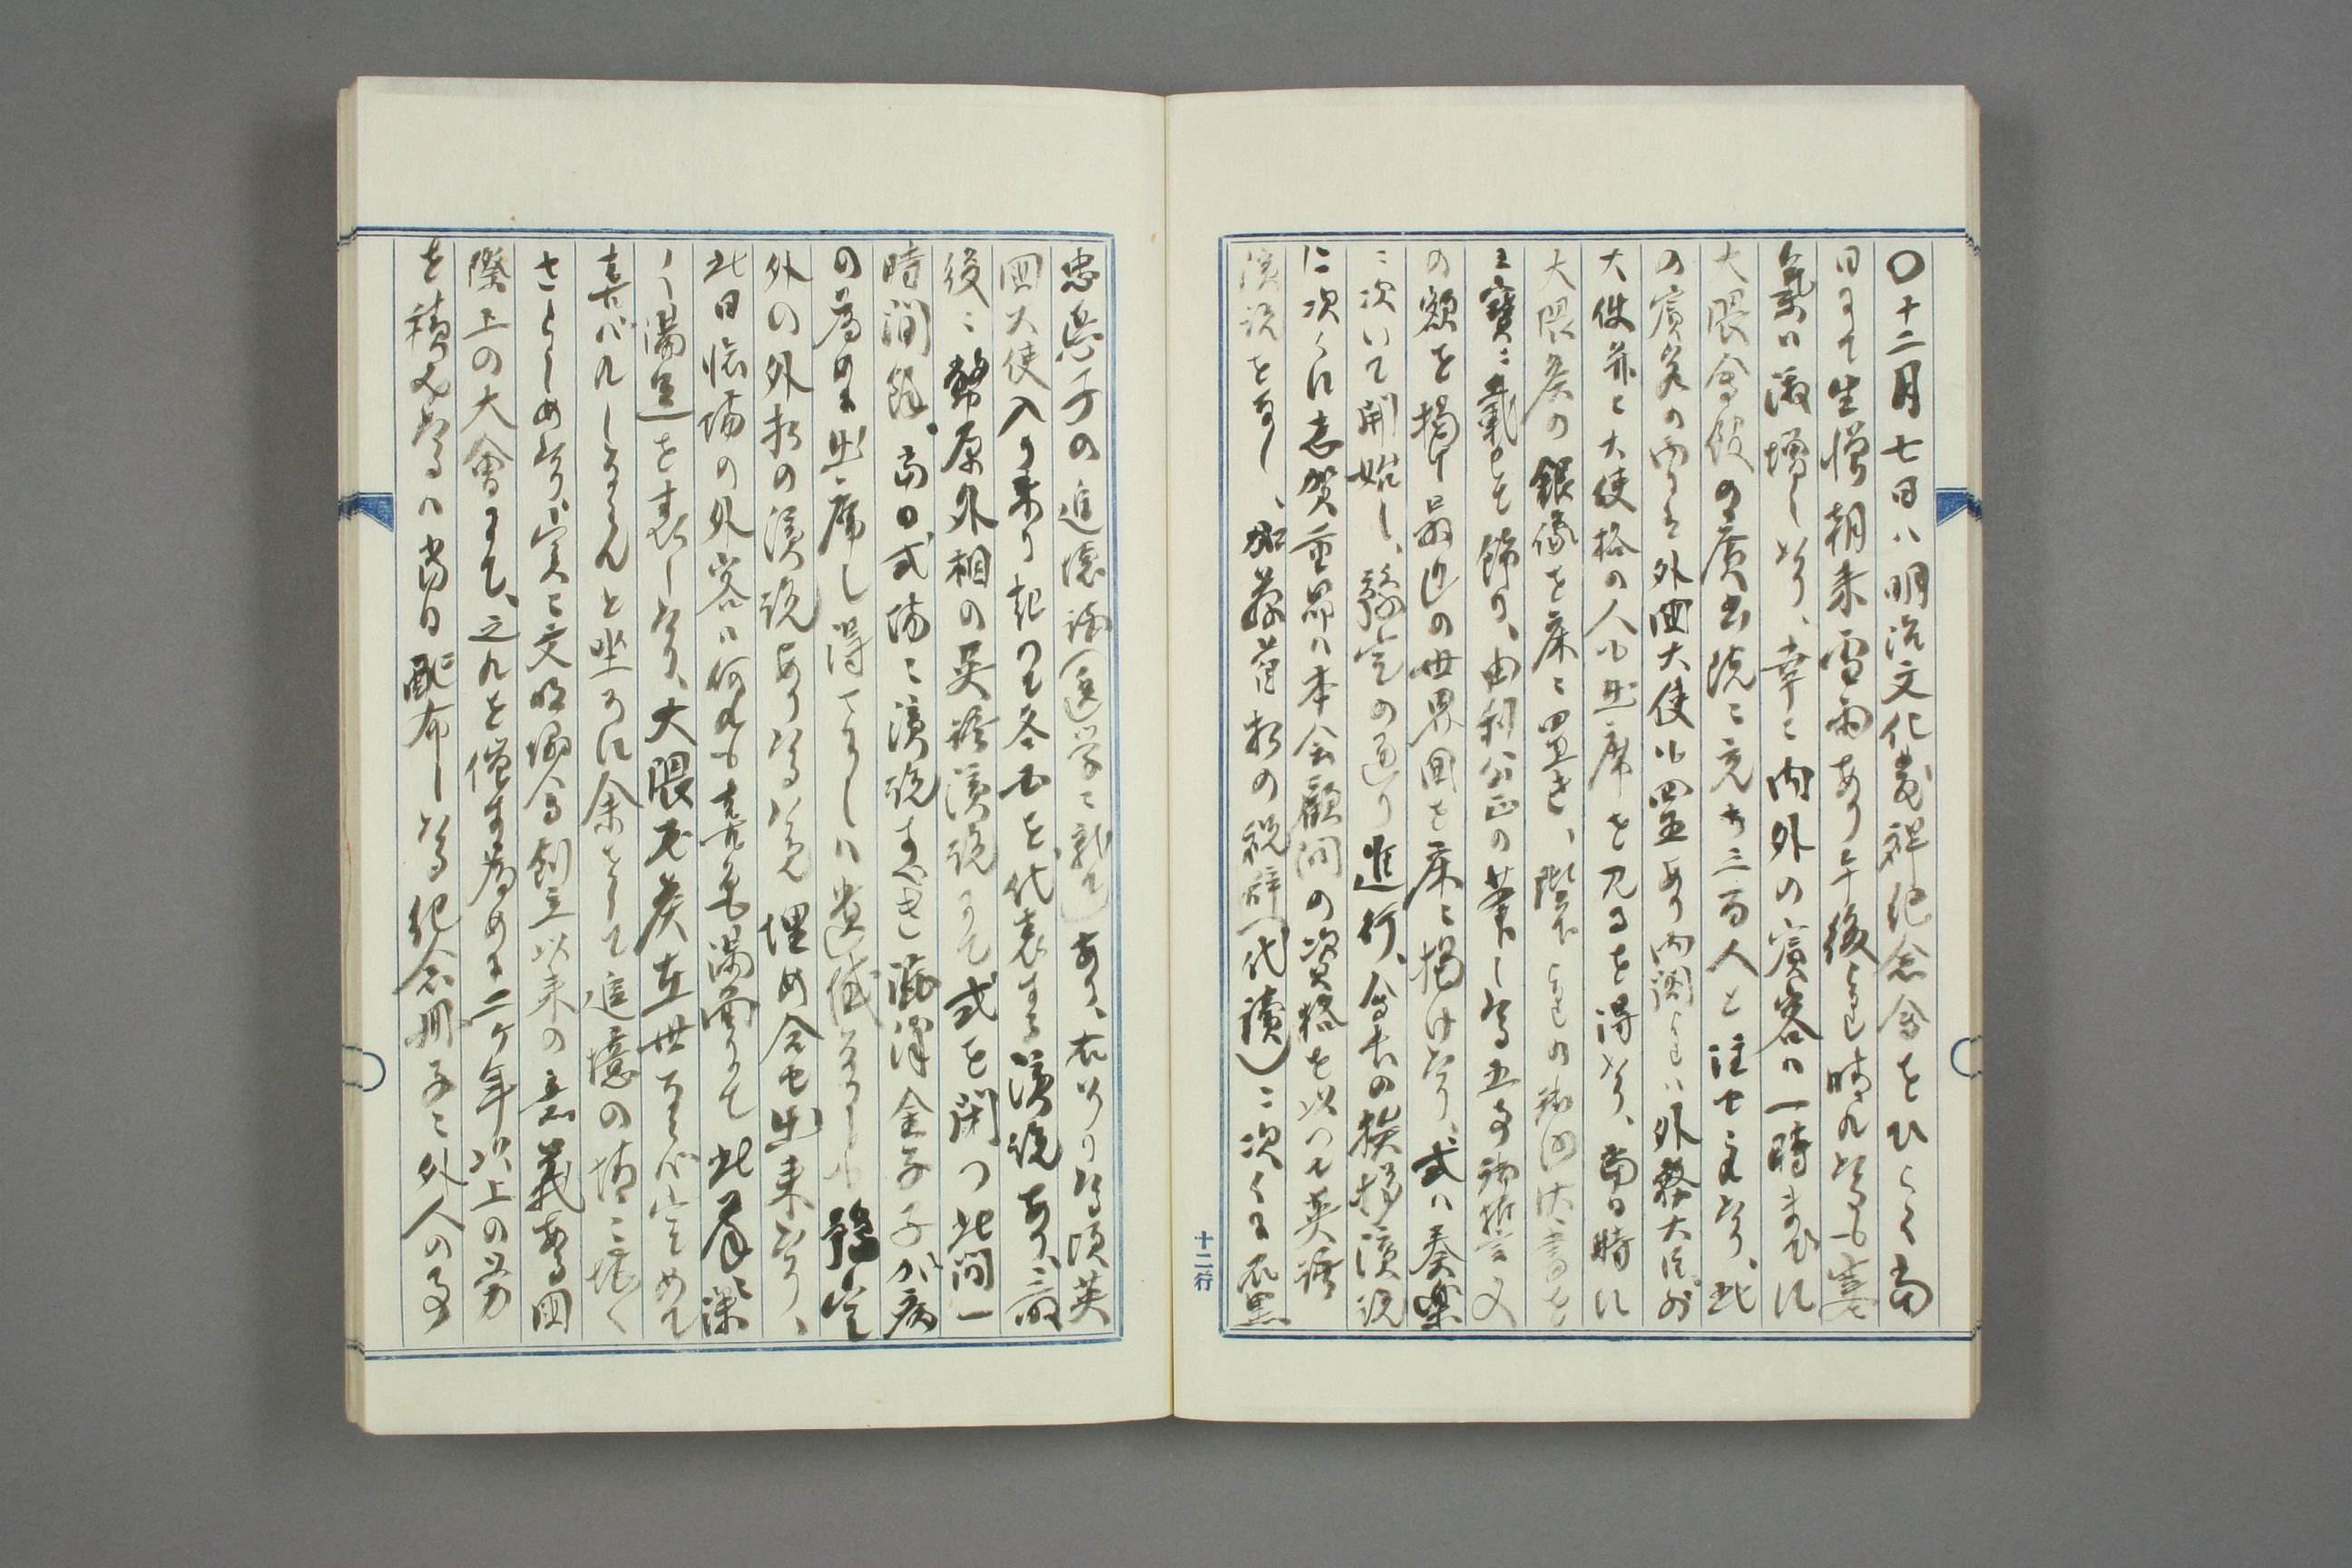 〇十二月七日ハ明治文化発祥紀念会をひらく当
日にて生憎朝来雪雨あり午後より晴れたるも寒
気ハ激増したり、幸に内外の賓客ハ一時までに
大隈会館の広書院に充ち三百人と註せられたり、此
の賓客の中には外国大使の四五あり内閣よりハ外務大臣
大使並に大使格の人も出席を見るを得たり、当日特に
大隈侯の銀像を床に置き、陛下よりの御沙汰書を
三宝に載せて飾り、由利公正の草したる五事御誓文
の額を掲け最近の世界図を床に掲けたり、式ハ奏楽
に次いて開始し、予定の通り進行、会長の挨拶演説
に次くに志賀重昂ハ本会顧問の資格を以つて英語
演説をなし、加藤首相の祝辞（代読）に次くに石黒
忠悳子の追懐談（医学に就て）あり、右終りたる頃英
国大使入り来り起つて各国を代表する演説あり、最
後に幣原外相の英語演説にて式を閉つ此間一
時間余、当日式場に演説すへき渋沢金子子が病
の為めに出席し得さりしハ遺憾なりしも予定
外の外相の演説ありたる為埋め合せ出来たり、
此日臨場の外客ハ何れも喜色満面にて此挙に深
く満足を表したり、大隈老侯在世ならバ定めて
喜バれしならんと坐ろに余をして追憶の情に堪へ
さらしめたり、実に文明協会創立以来の意義ある国
際上の大会にて、之れを催す為めに二ヶ年以上の労
を積みたるハ当日配布したる紀念冊子に外人の事
十二行